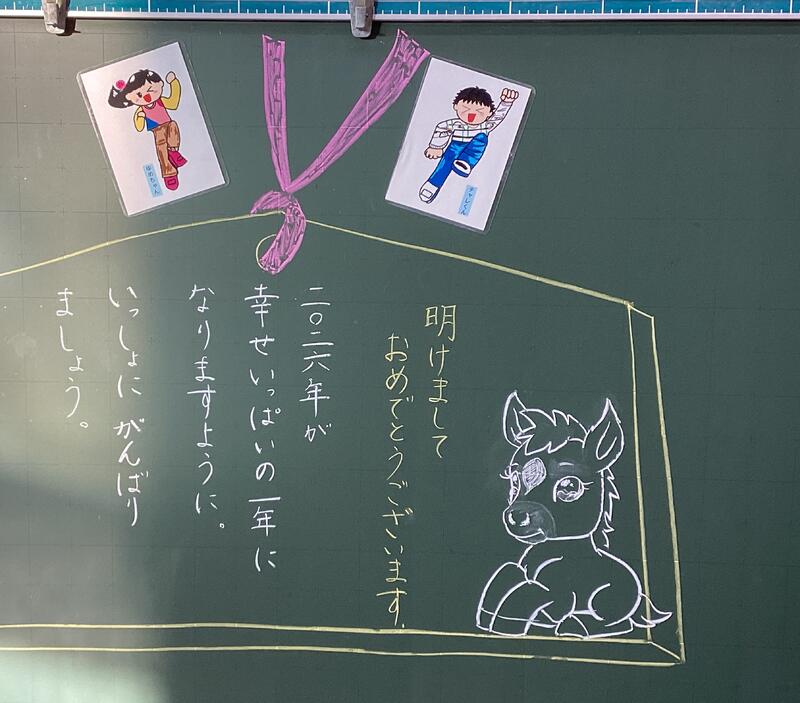 明けまして
おめでとうございます。
二〇二六年が
幸せいっぱいの一年に
なりますように。
いっしょに がんばり
ましょう。
ゆめちゃん
チャレくん